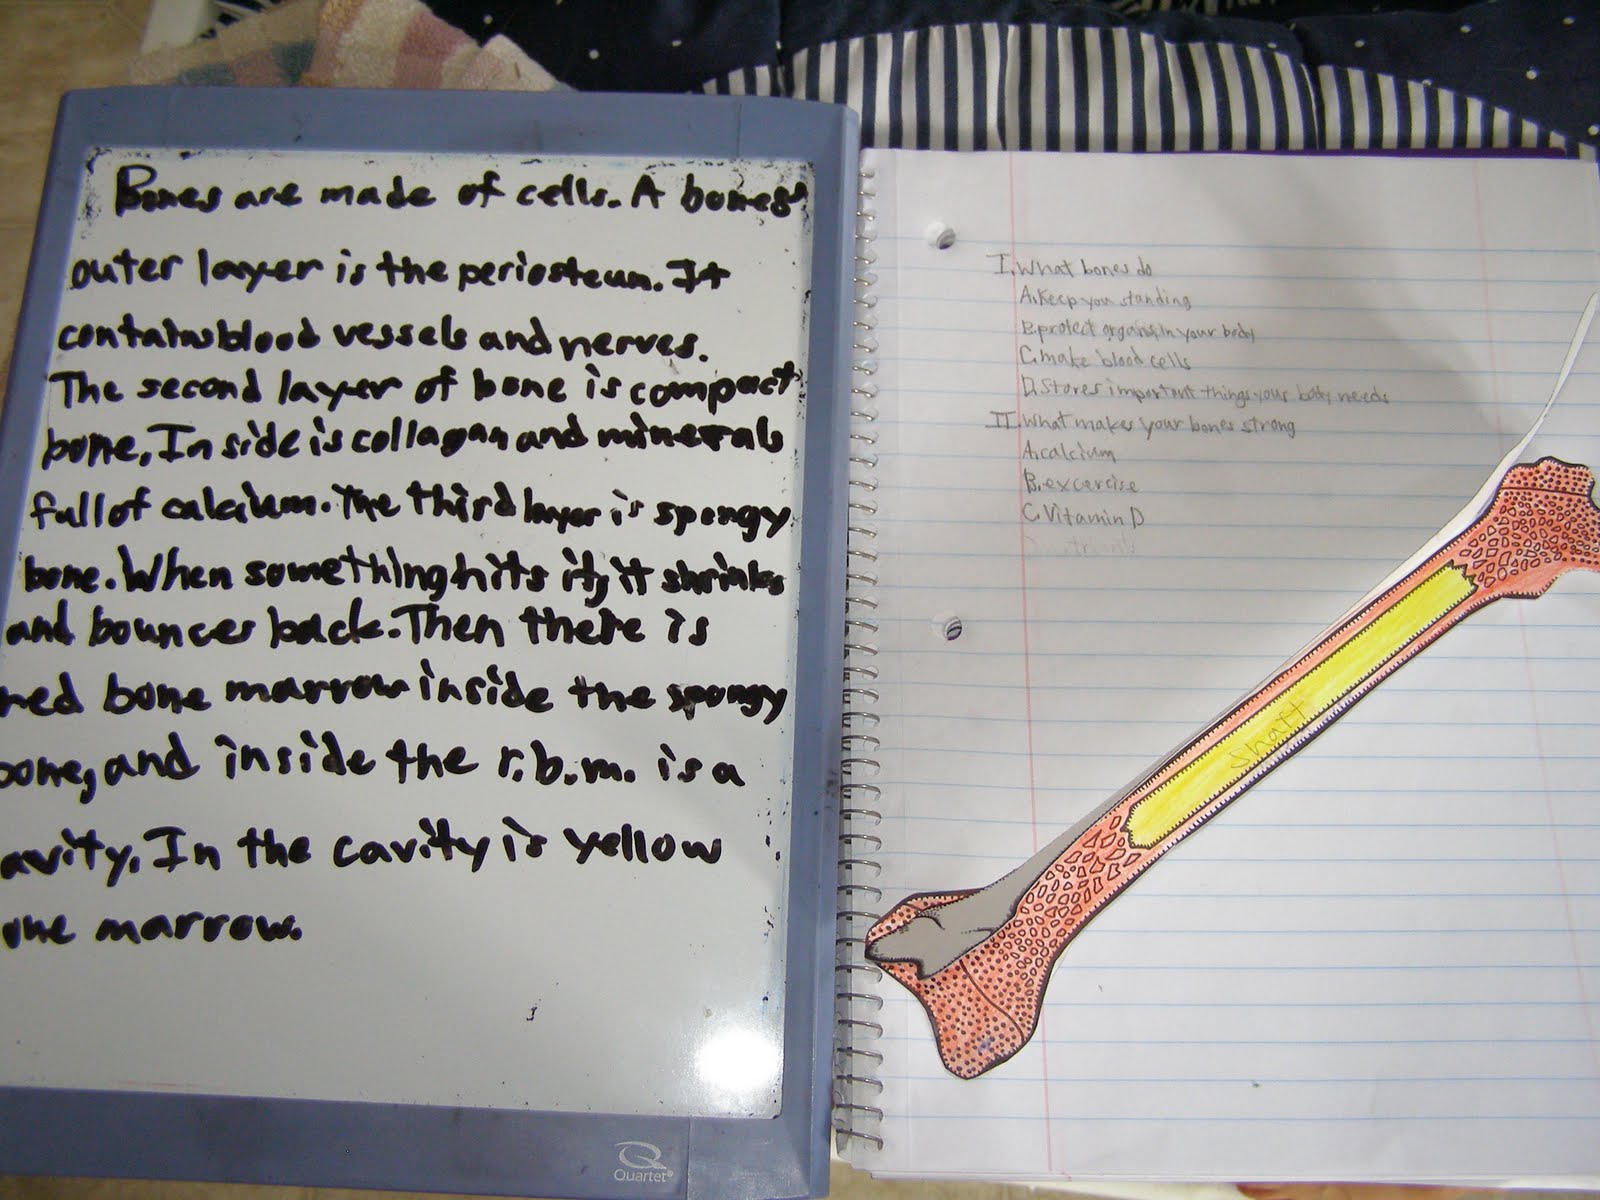 Bones are made of cells. A bones'
outer layer is the periosteum. It
contains blood vessels and nerves.
The second layer of bone is compact
bone. Inside is collagan and minerals
full of calcium. The third layer is spongy
bone. When something hits it, it shrinks
and bounces back. Then there is
red bone marrow inside the spongy
bone, and inside the r.b.m. is a
avity. In the cavity is yellow
one marrow.
Quartet®
I. What bones do
A. Keep you standing
B. protect organs in your body
C. make blood cells
D. Stores important things your body needs
II. What makes your bones strong
A. calcium
B. excercise
C. Vitamin D
Shaft